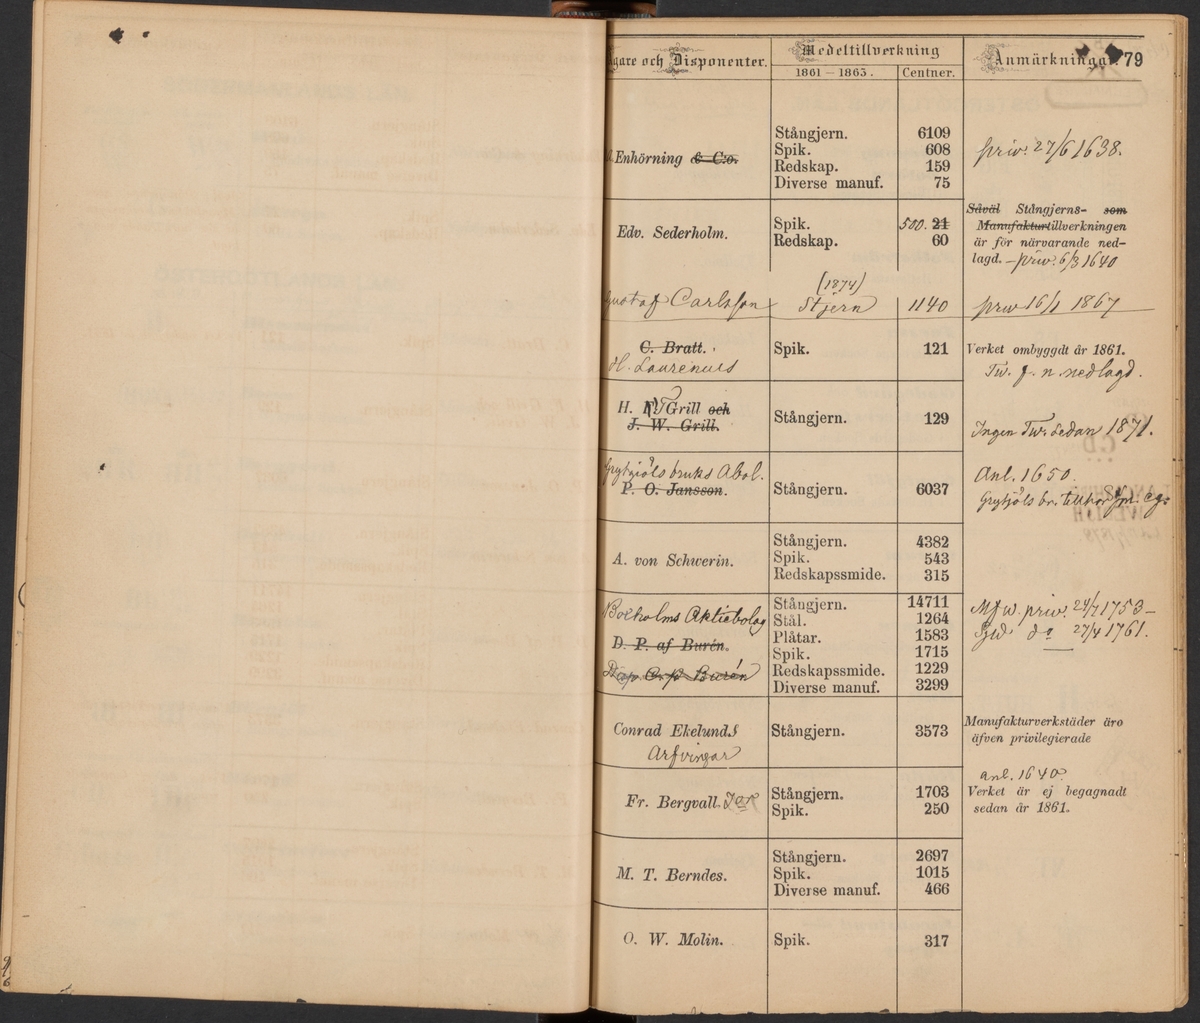 gare och Disponenter. Medeltillverkning Anmärkningar. 79
1861–1863. Centner.
Enhörning & C:o. Stångjern. 6109 priv. 27/6 1638.
Spik. 608
Redskap. 159
Diverse manuf. 75
Edv. Sederholm. Spik. 500. 21
Redskap. 60
Såväl Stångjerns- som
Manufakturtillverkningen
är för närvarande ned-
lagd. – priv. 6/3 1640
(1874)
Gustaf Carlsson Stjern 1140 priv 16/1 1867
C. Bratt. Spik. 121 Verket ombyggdt år 1861.
Laurenius Tw. f. n. nedlagd.
H. Grill och Stångjern. 129
J. W. Grill. Ingen Tw. sedan 1871.
Grytgöls bruks Abol. Anl. 1650.
P. O. Jansson. Stångjern. 6037 Grytgöls br.
A. von Schwerin. Stångjern. 4382
Spik. 543
Redskapssmide. 315
Boxholms Aktiebolag Stångjern. 14711 Mfw. priv. 24/7 1753 –
Stål. 1264 do 27/4 1761.
D. P. af Burén. Plåtar. 1583
Spik. 1715
Burén Redskapssmide. 1229
Diverse manuf. 3299
Conrad Ekelunds Stångjern. 3573 Manufakturverkstäder äro
Arfvingar äfven privilegierade
anl. 1640.
Fr. Bergvall. Stångjern. 1703 Verket är ej begagnadt
Spik. 250 sedan år 1861.
M. T. Berndes. Stångjern. 2697
Spik. 1015
Diverse manuf. 466
O. W. Molin. Spik. 317